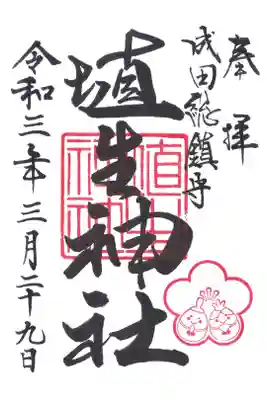 奉拝
成田総鎮守
埴生神社
令和三年三月二十九日
埴生神社